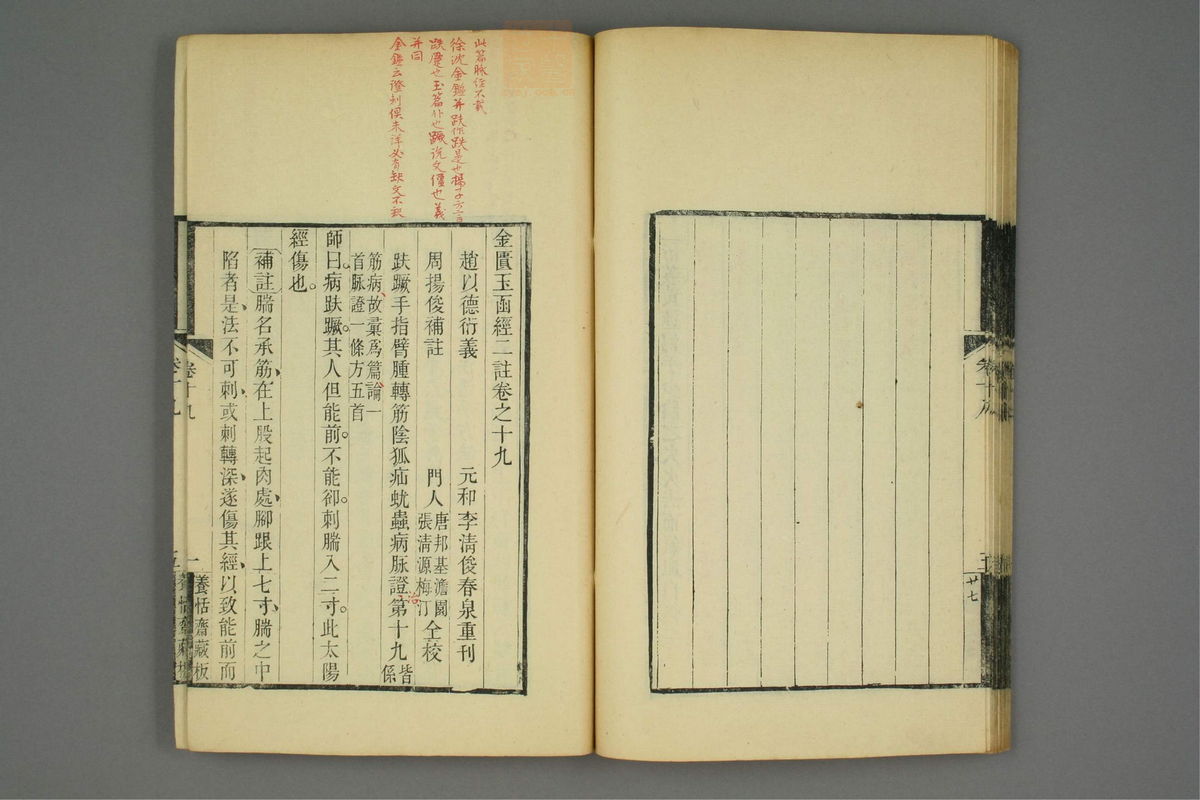 卷十八
廿七
此篇脉経不載
徐沈金鑑并趺作跌是也楊子方言
跌蹷也玉篇仆也蹶說文僵也義
并同
金鑑云證刺俱未詳必有缺文不釈
金匱玉函經二註卷之十九
趙以德衍義 元和李清俊春泉重刊
周揚俊補註 門人唐邦基澹園張清源梅汀仝校
趺蹶手指臂腫轉筋陰狐疝蚘蟲病脉證治第十九皆係
筋病故彙爲篇論一
首脈證一條方五首
師曰病趺蹶其人但能前不能卻刺腨入二寸此太陽
經傷也
補註腨名承筋在上股起肉處腳跟上七寸腨之中
陷者是法不可刺或刺轉深遂傷其經以致能前而
卷十九
一
養恬齋藏板